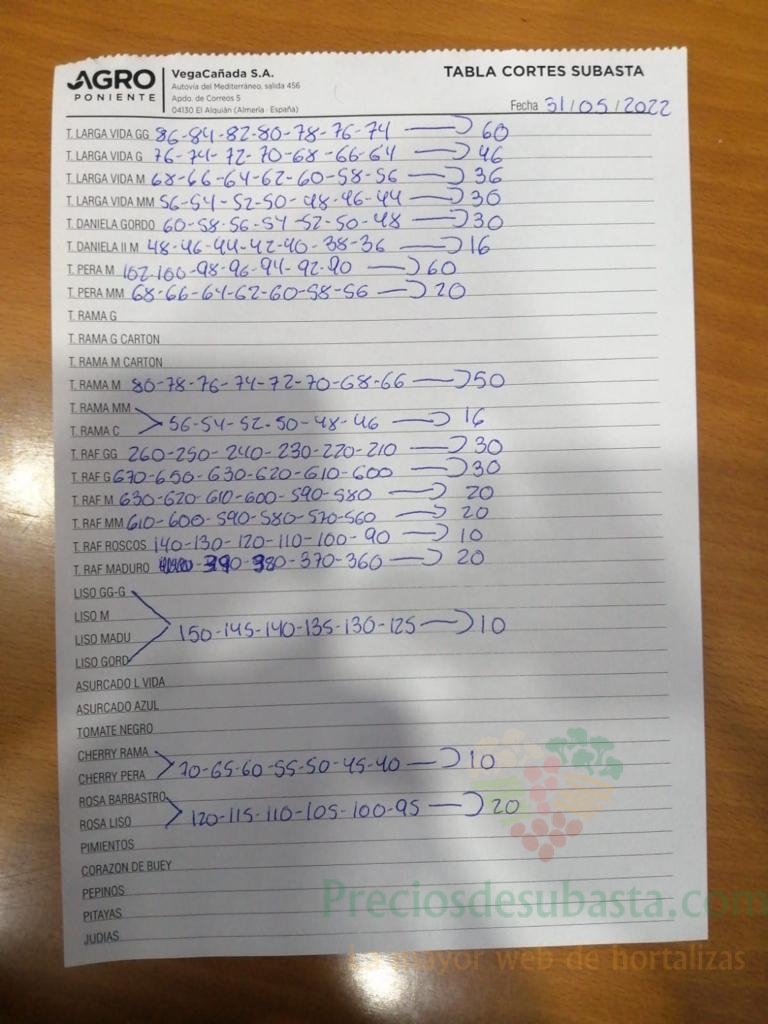 AGRO
PONIENTE
VegaCañada S.A.
Autovía del Mediterráneo, salida 456
Apdo. de Correos 5
04130 El Alquián (Almería · España)
TABLA CORTES SUBASTA
Fecha 31/05/2022
T. LARGA VIDA GG 86-84-82-80-78-76-74 60
T. LARGA VIDA G 76-74-72-70-68-66-64 46
T. LARGA VIDA M 68-66-64-62-60-58-56 36
T. LARGA VIDA MM 56-54-52-50-48-46-44 30
T. DANIELA GORDO 60-58-56-54-52-50-48 30
T. DANIELA II M 48-46-44-42-40-38-36 16
T. PERA M 102-100-98-96-94-92-90 60
T. PERA MM 68-66-64-62-60-58-56 20
T. RAMA G
T. RAMA G CARTON
T. RAMA M CARTON
T. RAMA M 80-78-76-74-72-70-68-66 50
T. RAMA MM
56-54-52-50-48-46 16
T. RAMA C
T. RAF GG 260-250-240-230-220-210 30
T. RAF G 670-650-630-620-610-600 30
T. RAF M 630-620-610-600-590-580 20
T. RAF MM 610-600-590-580-570-560 20
T. RAF ROSCOS 140-130-120-110-100-90 10
T. RAF MADURO 390-380-370-360 20
LISO GG-G
LISO M
150-145-140-135-130-125 10
LISO MADU
LISO GORD
ASURCADO L VIDA
ASURCADO AZUL
TOMATE NEGRO
CHERRY RAMA
70-65-60-55-50-45-40 10
CHERRY PERA
ROSA BARBASTRO
120-115-110-105-100-95 20
ROSA LISO
PIMIENTOS
CORAZON DE BUEY
PEPINOS
PITAYAS
JUDIAS
Preciosdesubasta.com
La mayor web de hortalizas